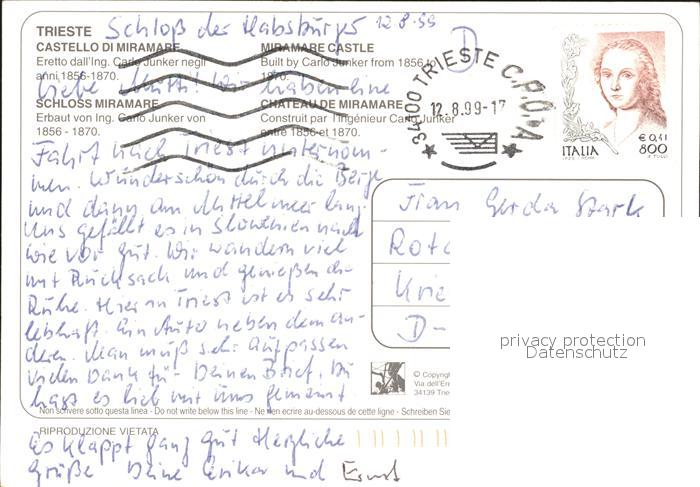 TRIESTE Schloß der Habsburger 12.8.99
CASTELLO DI MIRAMARE
Eretto dall'Ing. Carlo Junker negli
anni 1856-1870.
MIRAMARE CASTLE
Built by Carlo Junker from 1856 to
1870.
SCHLOSS MIRAMARE
Erbaut von Ing. Carlo Junker von
1856 - 1870.
CHATEAU DE MIRAMARE
Construit par l'ingénieur Carlo Junker
entre 1856 et 1870.
34100 TRIESTE C.P.O.A
12.8.99-17
€ 0,41
ITALIA 800
Liebe Mutti! Wir haben eine
Fahrt nach Triest unternom-
men. Wunderschön durch die Berge
und dann am Mittelmeer lang.
Uns gefällt es in Slowenien nach
wie vor gut. Wir wandern viel
mit Rucksack und genießen die
Ruhe. Hier in Triest ist es sehr
lebhaft. Ein Auto neben dem an-
deren. Man muß sehr aufpassen
Vielen Dank für Deinen Brief. Du
hast es lieb mit uns gemeint
Es klappt ganz gut Herzliche
Grüße Deine Erika und Ernst
Frau Gerda Stark
Rote
Krie
D-
privacy protection
Datenschutz
© Copyrig
Via dell'Ere
34139 Trie
Non scrivere sotto questa linea - Do not write below this line - Ne rien ecrire au-dessous de cette ligne - Schreiben Sie
RIPRODUZIONE VIETATA